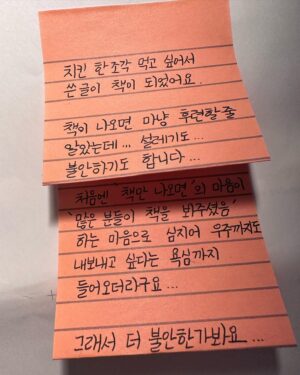 치킨 한조각 먹고 싶어서
쓴글이 책이 되었어요.
책이 나오면 마냥 후련할줄
알았는데... 설레기도...
불안하기도 합니다...
처음에 '책만 나오면'의 마음이
'많은 분들이 책을 봐주셨음'
하는 마음으로 심지어 우주까지도
내보내고 싶다는 욕심까지
들어오더라구요...
그래서 더 불안한가봐요...